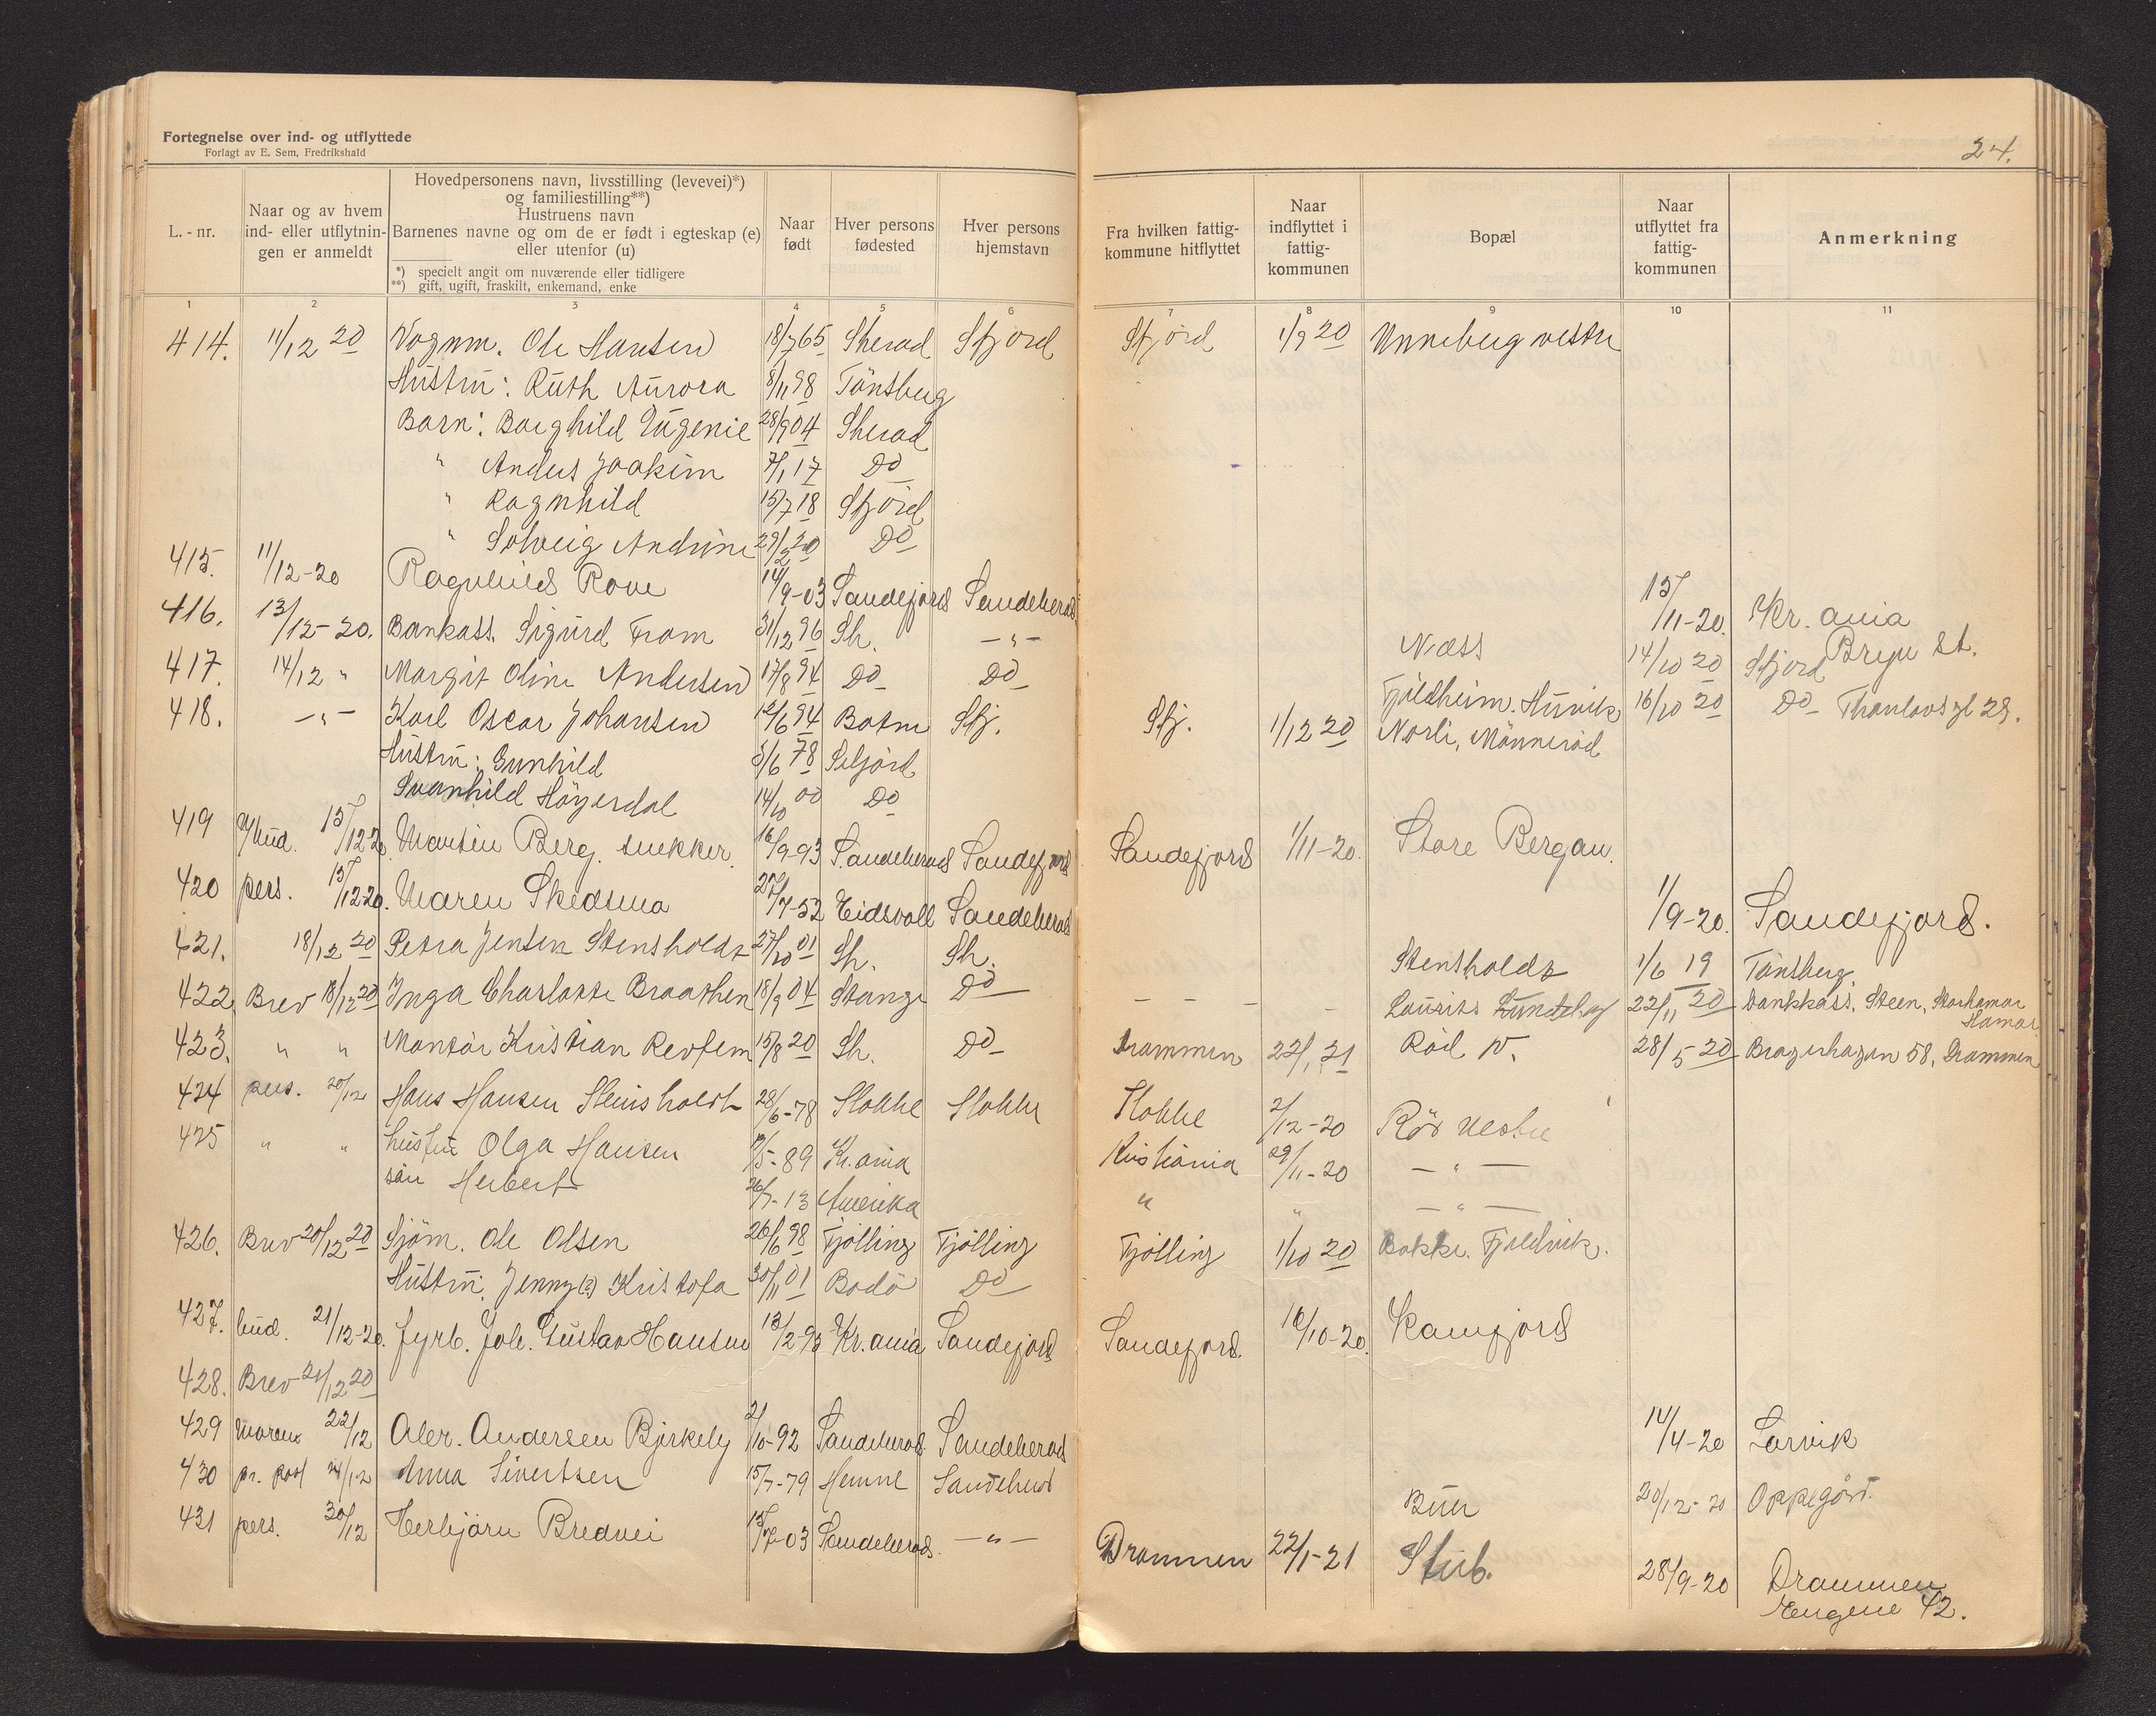 Fortegnelse over ind- og utflyttede
Forlagt av E. Sem, Fredrikshald
24.
L.-nr.
Naar og av hvem ind- eller utflytningen er anmeldt
Hovedpersonens navn, livsstilling (levevei)*)
og familiestilling**)
Hustruens navn
Barnenes navne og om de er født i egteskap (e)
eller utenfor (u)
*) specielt angit om nuværende eller tidligere
**) gift, ugift, fraskilt, enkemand, enke
Naar født
Hver persons fødested
Hver persons hjemstavn
Fra hvilken fattigkommune hitflyttet
Naar indflyttet i fattigkommunen
Bopæl
Naar utflyttet fra fattigkommunen
Anmerkning
1 2 3 4 5 6 7 8 9 10 11
414. 11/12 20 Vognm. Ole Hansen 18/7 65 Sherad Sfjord Sfjörd 1/9 20 Unneberg vestre
Hustru: Ruth Aurora 8/11 98 Tönsberg
Barn: Borghild Eugenie 28/9 04 Sherad
" Anders Joakim 7/1 17 Do
" Ragnhild 15/7 18 Sfjörd
" Solveig Andrine 29/2 20 Do
415. 11/12-20 Ragnhild Rove 14/9-03 Sandefjord Sandeherad 15/11-20. Kr.ania
416. 13/12-20. Bankass. Sigurd Fram 31/12 96 Sh. -"- Næss 14/10 20 Sfjord
417. 14/12 " Margit Oline Andersen 17/8 94 Do Do Fjeldheim. Hunvik 16/10 20 Do Thaulowsgt 29.
418. -"- Karl Oscar Johansen 12/6 94 Botne Sfj. Sfj. 1/12 20 Norli, Männeröd
Hustru: Gunhild 5/6 78 Seljord
Svanhild Höyesdal 14/10 00 Do
419 15/12 20 Martin Berg. snekker. 16/9-93 Sandeherad Sandefjord Sandefjord 1/11-20. Store Bergan.
420 pers. 15/12 20. Maren Skedsma 27/7-52 Eidsvoll Sandeherad 1/9-20. Sandefjord.
421. 18/12 20 Petra Jensen Stensholdt 27/10 01 Sh. Sh. Stensholdt 1/6 19 Tönsberg.
422. Brev 18/12 20 Inga Charlotte Braathen 18/9 04 Stange Do - - - - Laurits 22/11 20 Bankkass. Steen, Storhamar
Hamar
423. " " Montör Kristian Revfem 15/8 20 Sh. Do Drammen 22/1 21 Röd N. 28/5 20 Bragerhagen 58, Drammen
424 pers. 20/12 Hans Hansen Stensholdt 28/6-78 Stokke Stokke Stokke 2/12-20 Rör vestre
425 " " hustru Olga Hansen 2/5-89 Kr.ania Kristiania 29/11-20 -"-
sön Herbert 26/7-13 Amerika " " -"-
426. Brev 20/12 20 Sjöm. Ole Olsen 26/6 98 Tjölling Tjölling Tjölling 1/10 20 Bakke. Fjeldvik.
Hustru: Jenny (?) Kristofa 30/11 01 Bodö Do
427. bud. 21/12-20. fyrb. Joh. Gustav Hansen 13/2-93 Kr.ania Sandefjord Sandefjord. 16/10-20. Kamfjord
428. Brev 21/12 20
429 22/12 Alex. Andersen Bjerkely 21/10-92 Sandeherad Sandeherad 14/4-20 Larvik
430 pr. post 24/12 Anna Sivertsen 15/7-79 Hemne Sandeherd Buer 20/12-20 Oppegård.
431 pers. 30/12 Herbjörn Bredvei 15/7-03 Sandeherad. -"- Drammen 22/1-21 Stub. 28/9-20 Drammen
Engene 42.